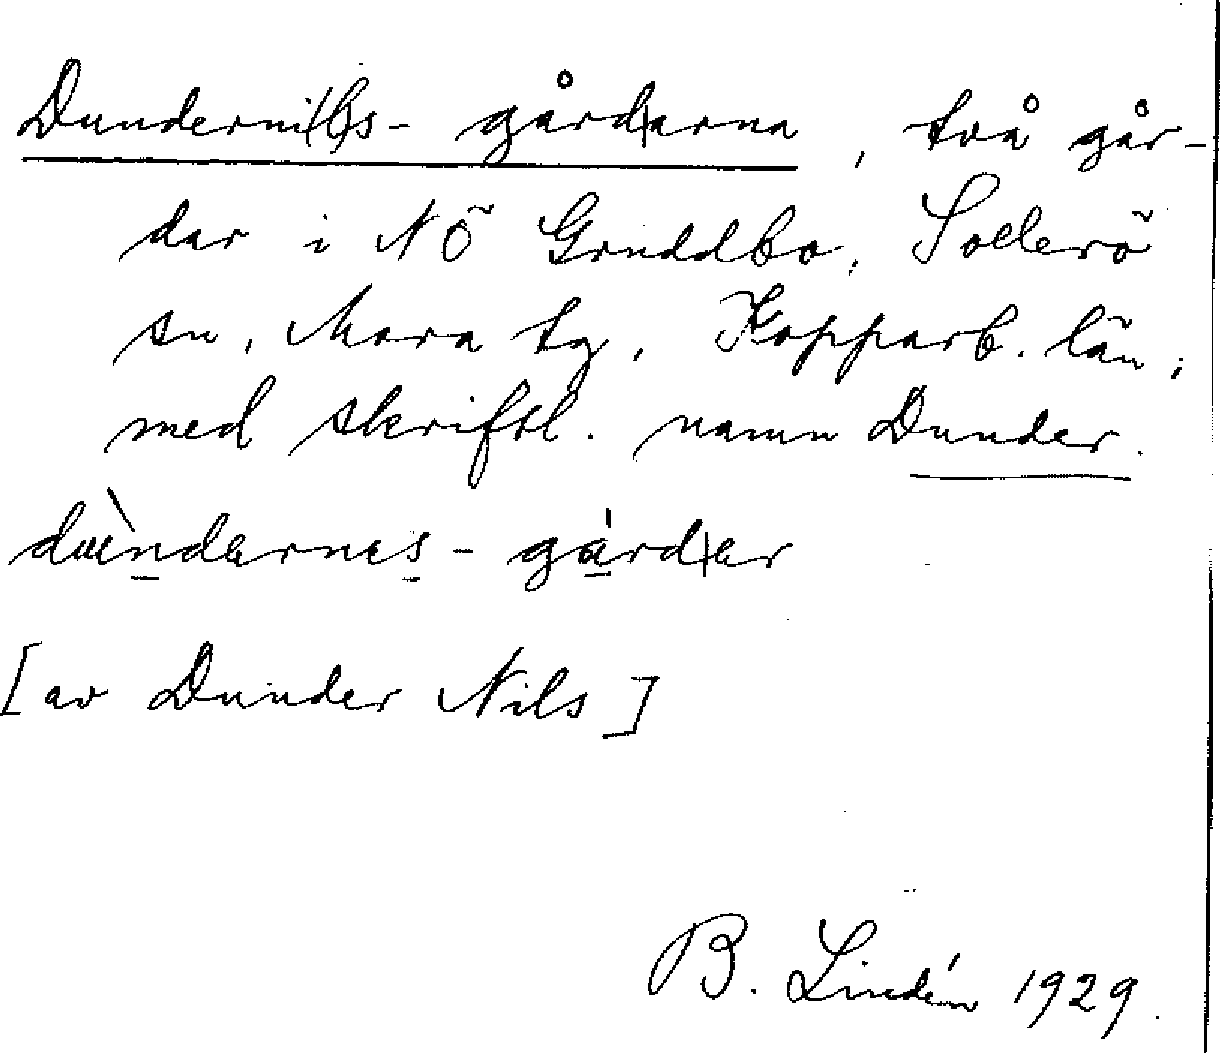 Dunderni(l)s-gård|arna, två går-
dar i NÖ Gruddbo, Sollerö
sn, Mora tg, Kopparb. län,
med skriftl. namn Dunder.
-gård|er
[av Dunder Nils]
B. Lindén 1929.